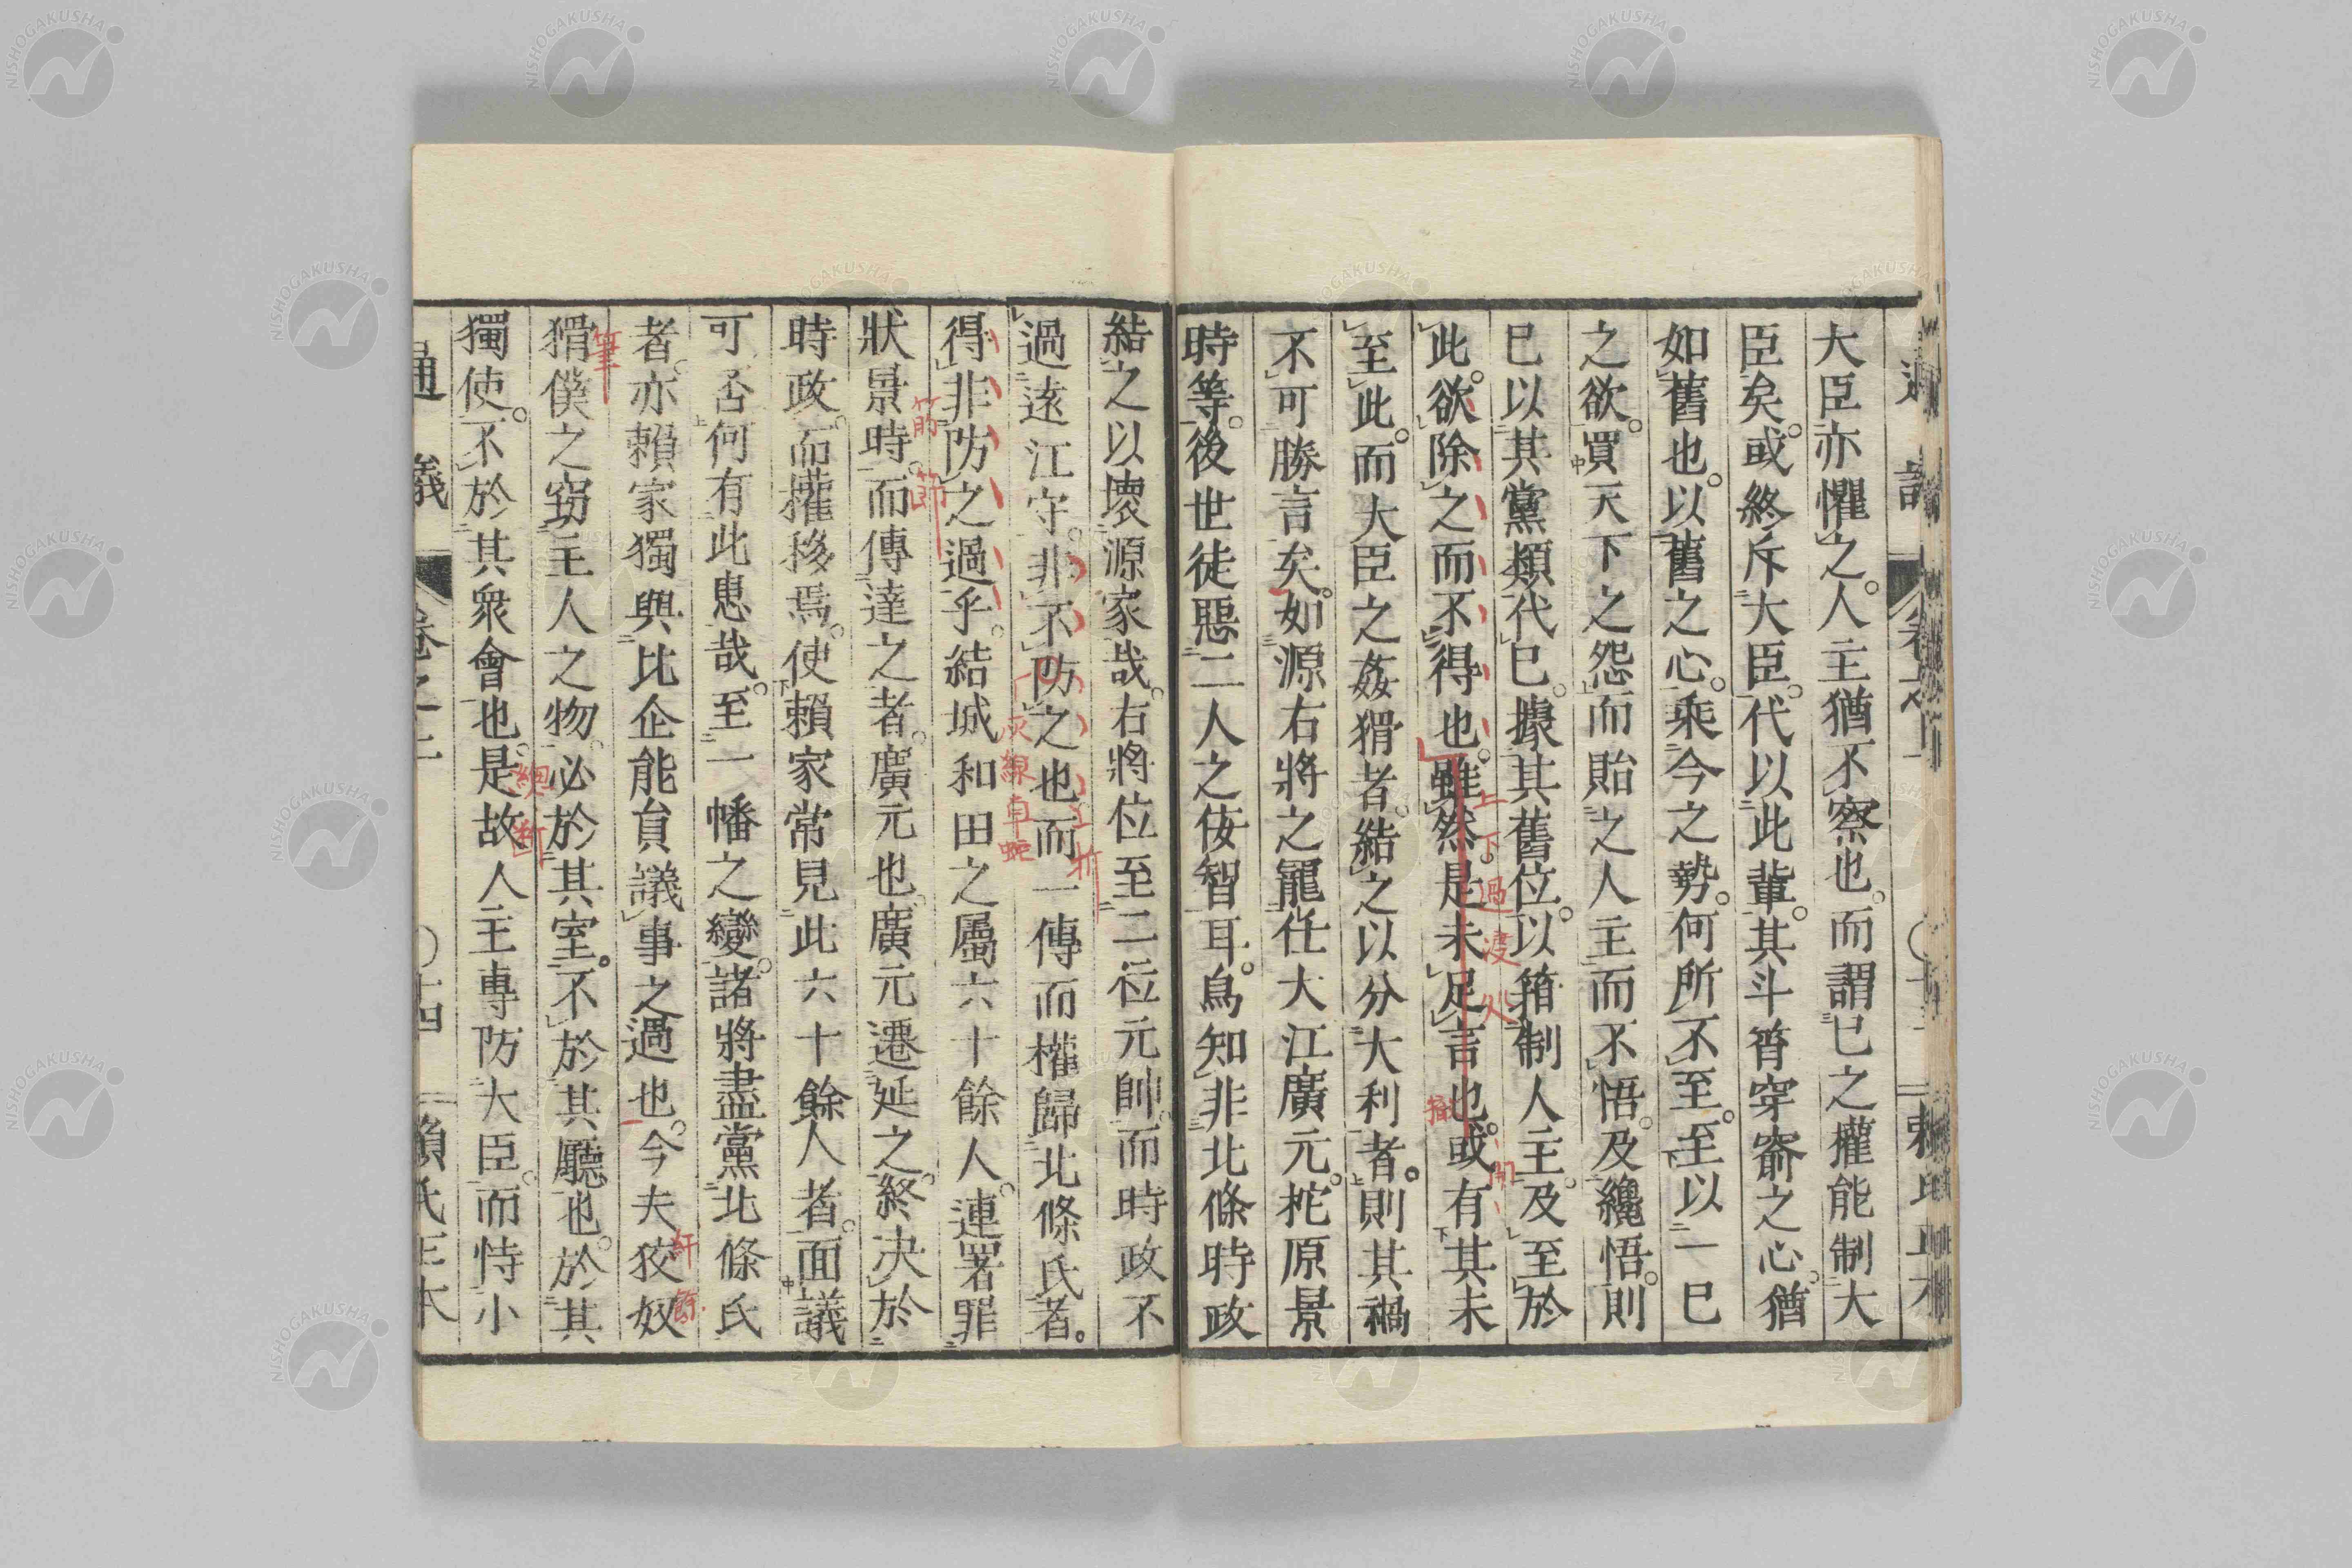 大臣亦懼之。人主猶不察也。而謂己之權能制大
臣矣。或終斥大臣。代以此輩。其斗筲穿窬之心。猶
如舊也。以舊之心。乘今之勢。何所不至。至以一己
之欲。買天下之怨。而貽之人主。而不悟。及纔悟。則
已以其黨類代己。據其舊位。以箝制人主。及至於
此。欲除之而不得也。雖然。是未足言也。或有其未
至此。而大臣之姦猾者。結之以分大利者。則其禍
不可勝言矣。如源右將之寵任大江廣元。梶原景
時等。後世徒惡二人之佞智耳。烏知非北條時政
結之以壞源家哉。右將位至二位元帥。而時政不
過遠江守。非不防之也。而一傳而權歸北條氏者。
得非防之過乎。結城和田之屬六十餘人。連署罪
狀景時。而傳達之者。廣元也。廣元遷延之。終決於
時政。而權移焉。使賴家常見此六十餘人者。面議
可否。何有此患哉。至一幡之變。諸將盡黨北條氏
者。亦賴家獨與比企能員議事之過也。今夫狡奴
猾僕之竊主人之物。必於其室。不於其廳也。於其
獨使。不於其衆會也。是故人主專防大臣。而恃小
通議 卷之二 〇十四 賴氏正本
上下過渡处
主折
灰線草蛇
筋節
紆餘
筆
總斷
NISHOGAKUSHA